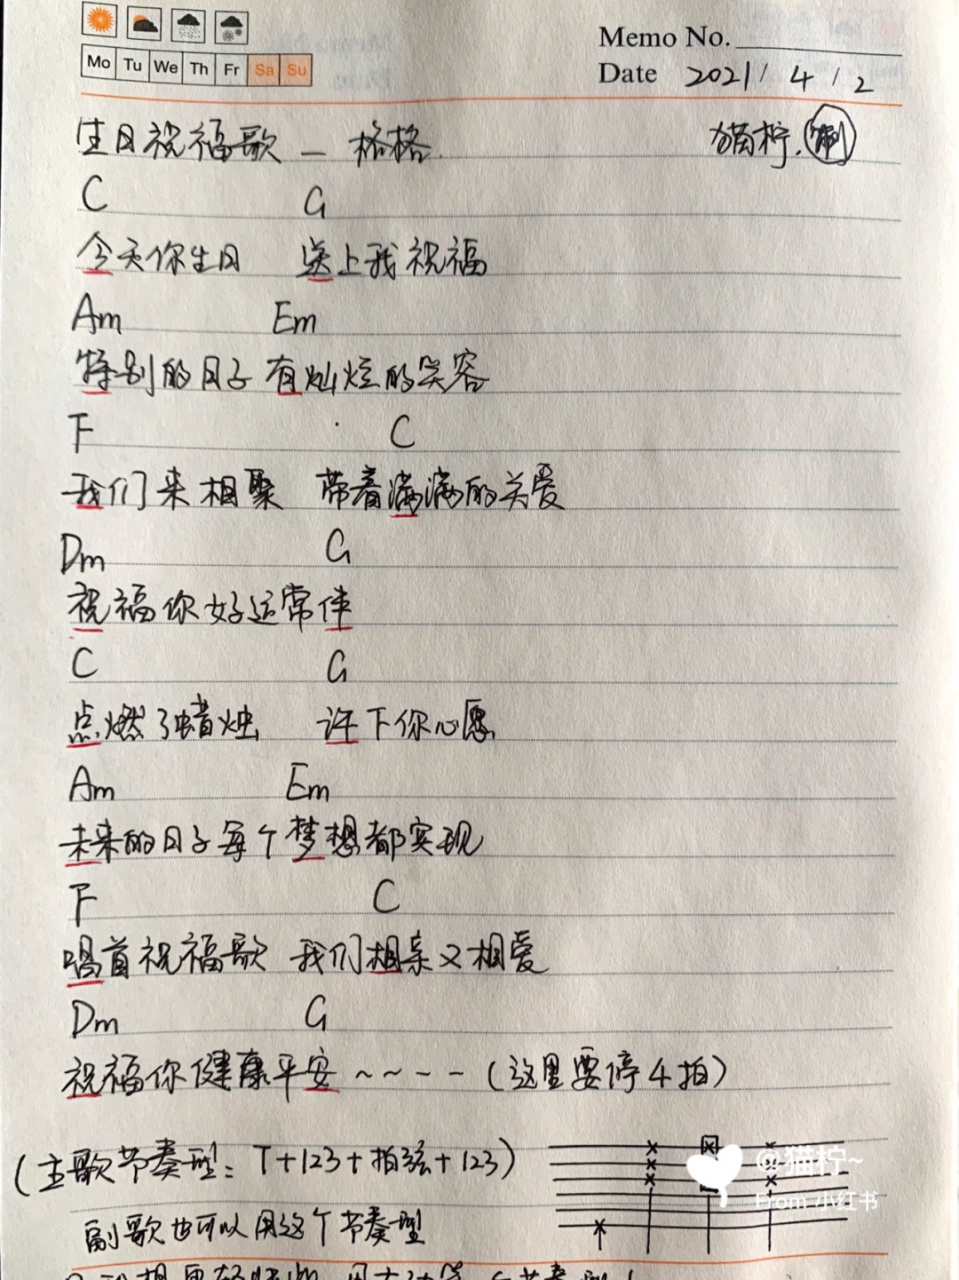 Memo No.
Mo Tu We Th Fr Sa Su
Date 2021/4/2
生日祝福歌 — 格格
猫柠.制
C G
今天你生日 送上我祝福
Am Em
特别的日子 有灿烂的笑容
F C
我们来相聚 带着满满的关爱
Dm G
祝福你好运常伴
C G
点燃了蜡烛 许下你心愿
Am Em
未来的日子每个梦想都实现
F C
唱首祝福歌 我们相亲又相爱
Dm G
祝福你健康平安~~~~(这里要停4拍)
(主歌节奏型: T+123+拍弦+123)
副歌也可以用这个节奏型
@猫柠~
From 小红书